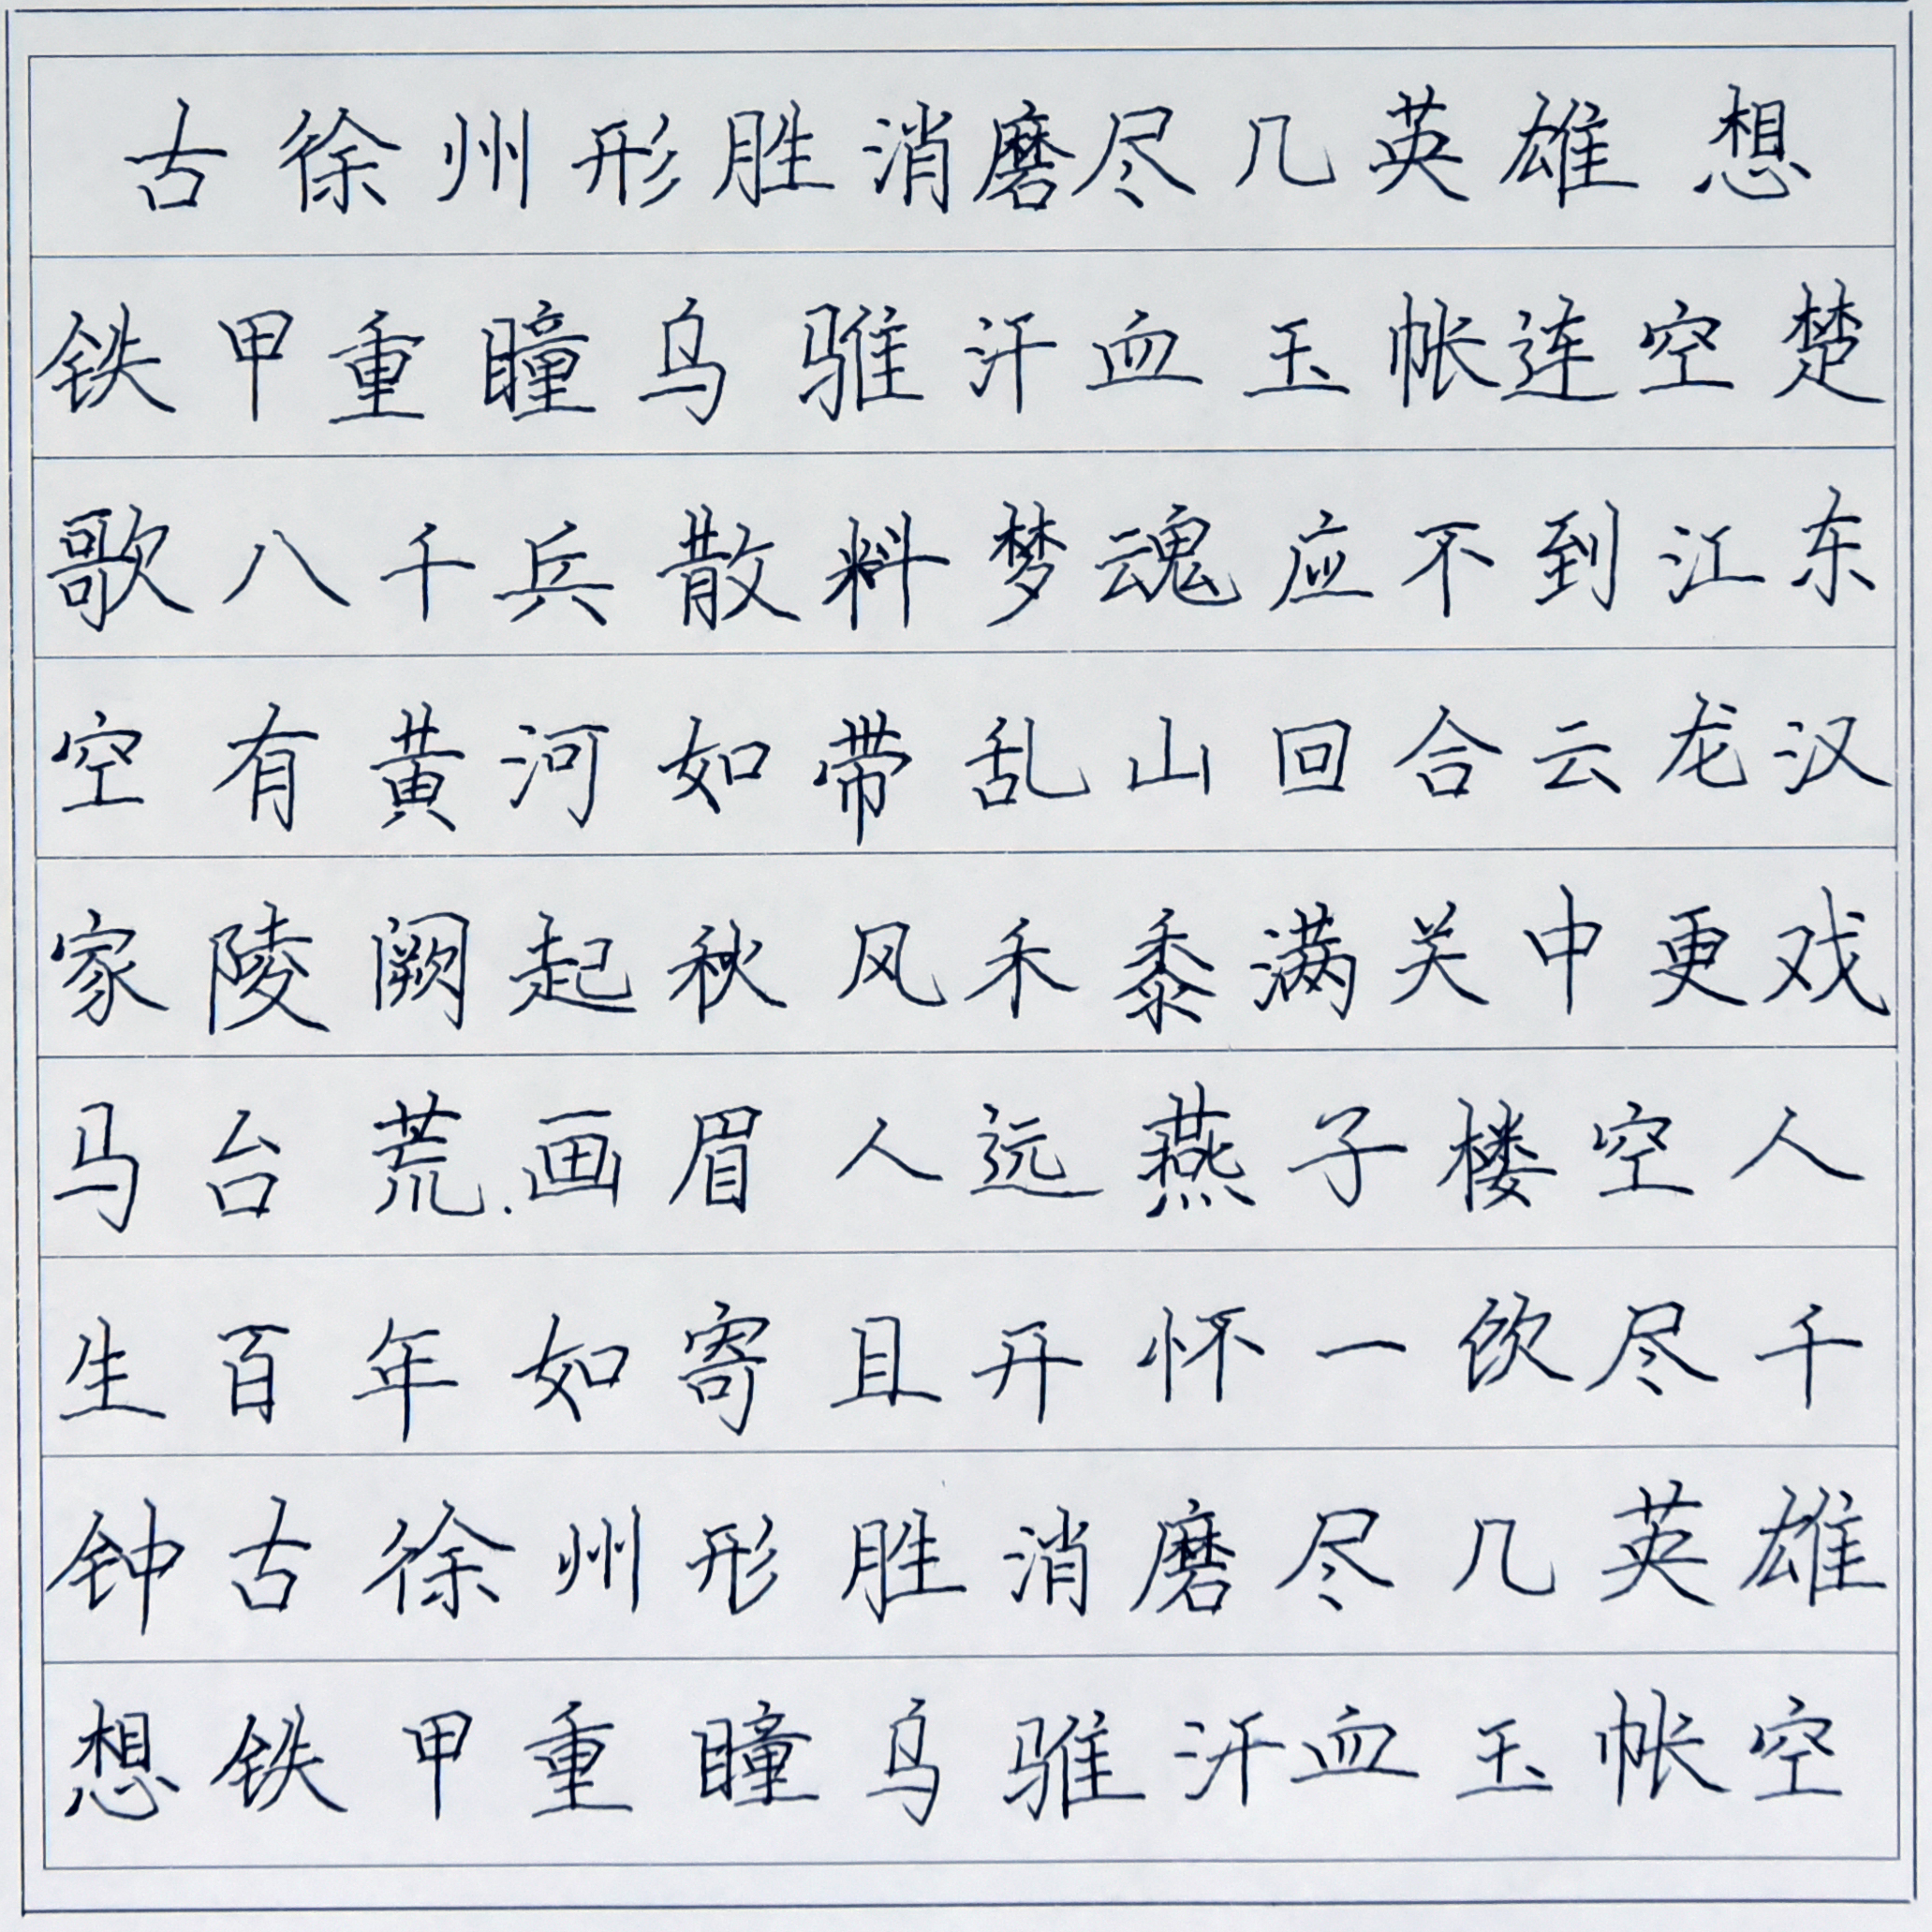 古徐州形胜消磨尽几英雄想
铁甲重瞳乌骓汗血玉帐连空楚
歌八千兵散料梦魂应不到江东
空有黄河如带乱山回合云龙汉
家陵阙起秋风禾黍满关中更戏
马台荒.画眉人远燕子楼空人
生百年如寄且开怀一饮尽千
钟古徐州形胜消磨尽几英雄
想铁甲重瞳乌骓汗血玉帐空